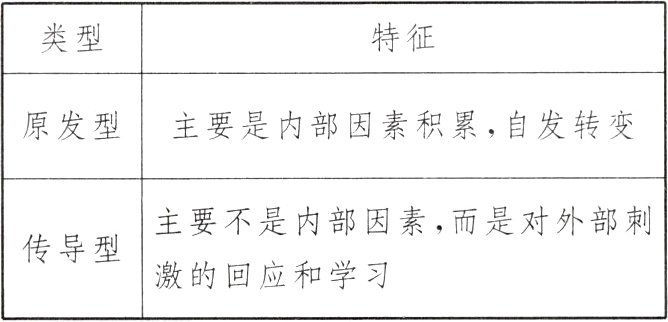 类型 特征
原发型 主要是内部因素积累,自发转变
传导型 主要不是内部因素,而是对外部刺
激的回应和学习